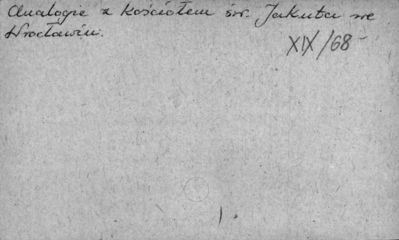 Analogie z kościołem św. Jakuba we
Wrocławiu.
XIX/68